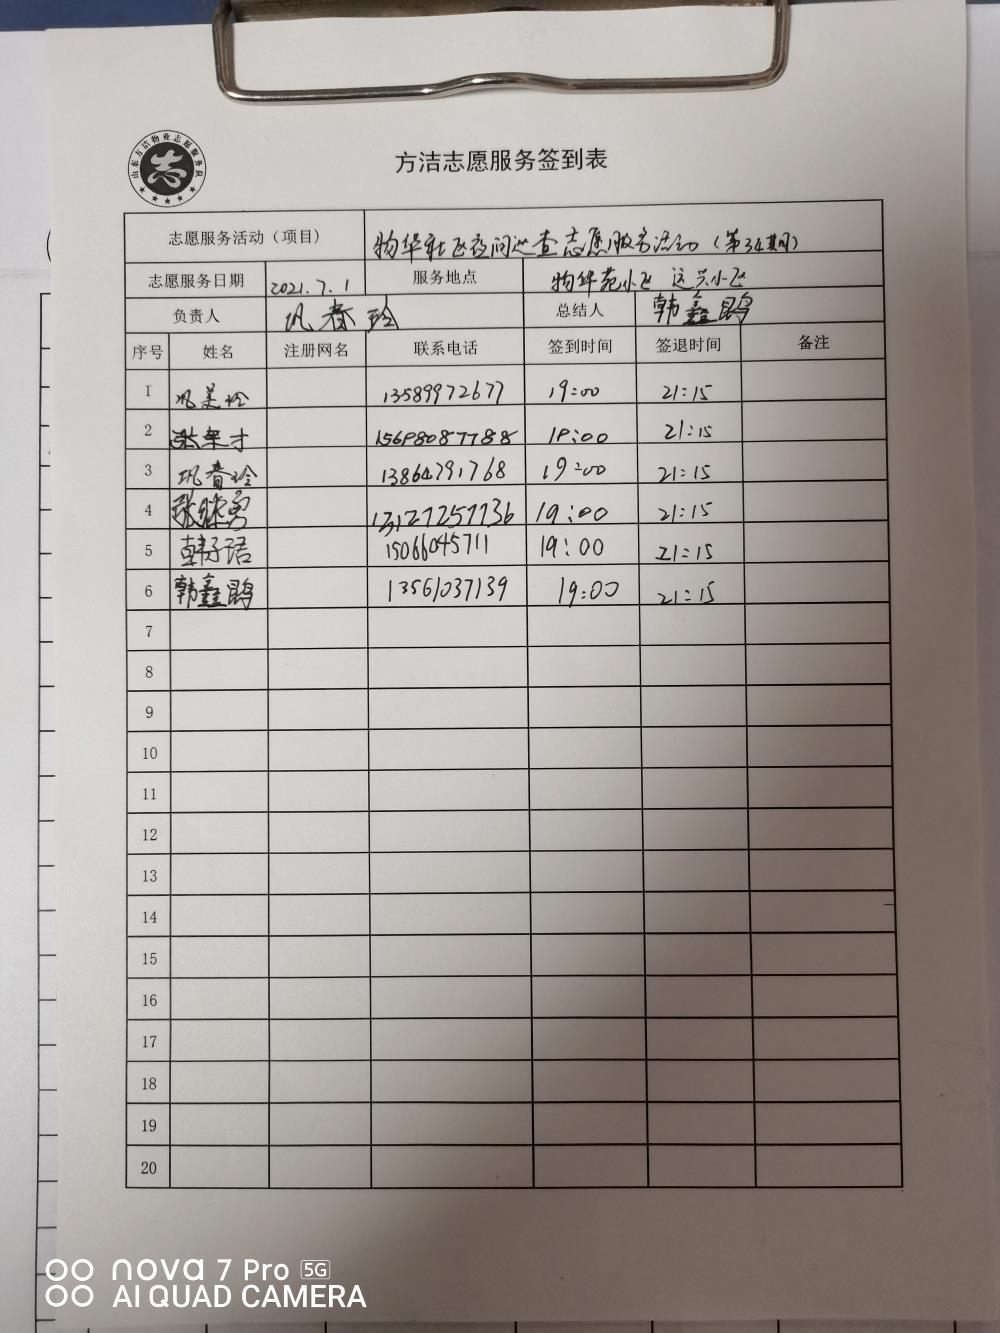 山东方洁物业志愿服务队
志
方洁志愿服务签到表
志愿服务活动（项目） 物华社区夜间巡查志愿服务活动（第34期）
志愿服务日期 2021.7.1 服务地点 物华苑小区 达兴小区
负责人 巩春玲 总结人 韩鑫鹍
序号 姓名 注册网名 联系电话 签到时间 签退时间 备注
1 巩美玲 13589972677 19:00 21:15
2 15698087788 19:00 21:15
3 巩春玲 13864791768 19:00 21:15
4 张继勇 19:00 21:15
5 韩子语 15066045711 19:00 21:15
6 韩鑫鹍 13561037139 19:00 21:15
7
8
9
10
11
12
13
14
15
16
17
18
19
20
nova 7 Pro 5G
AI QUAD CAMERA